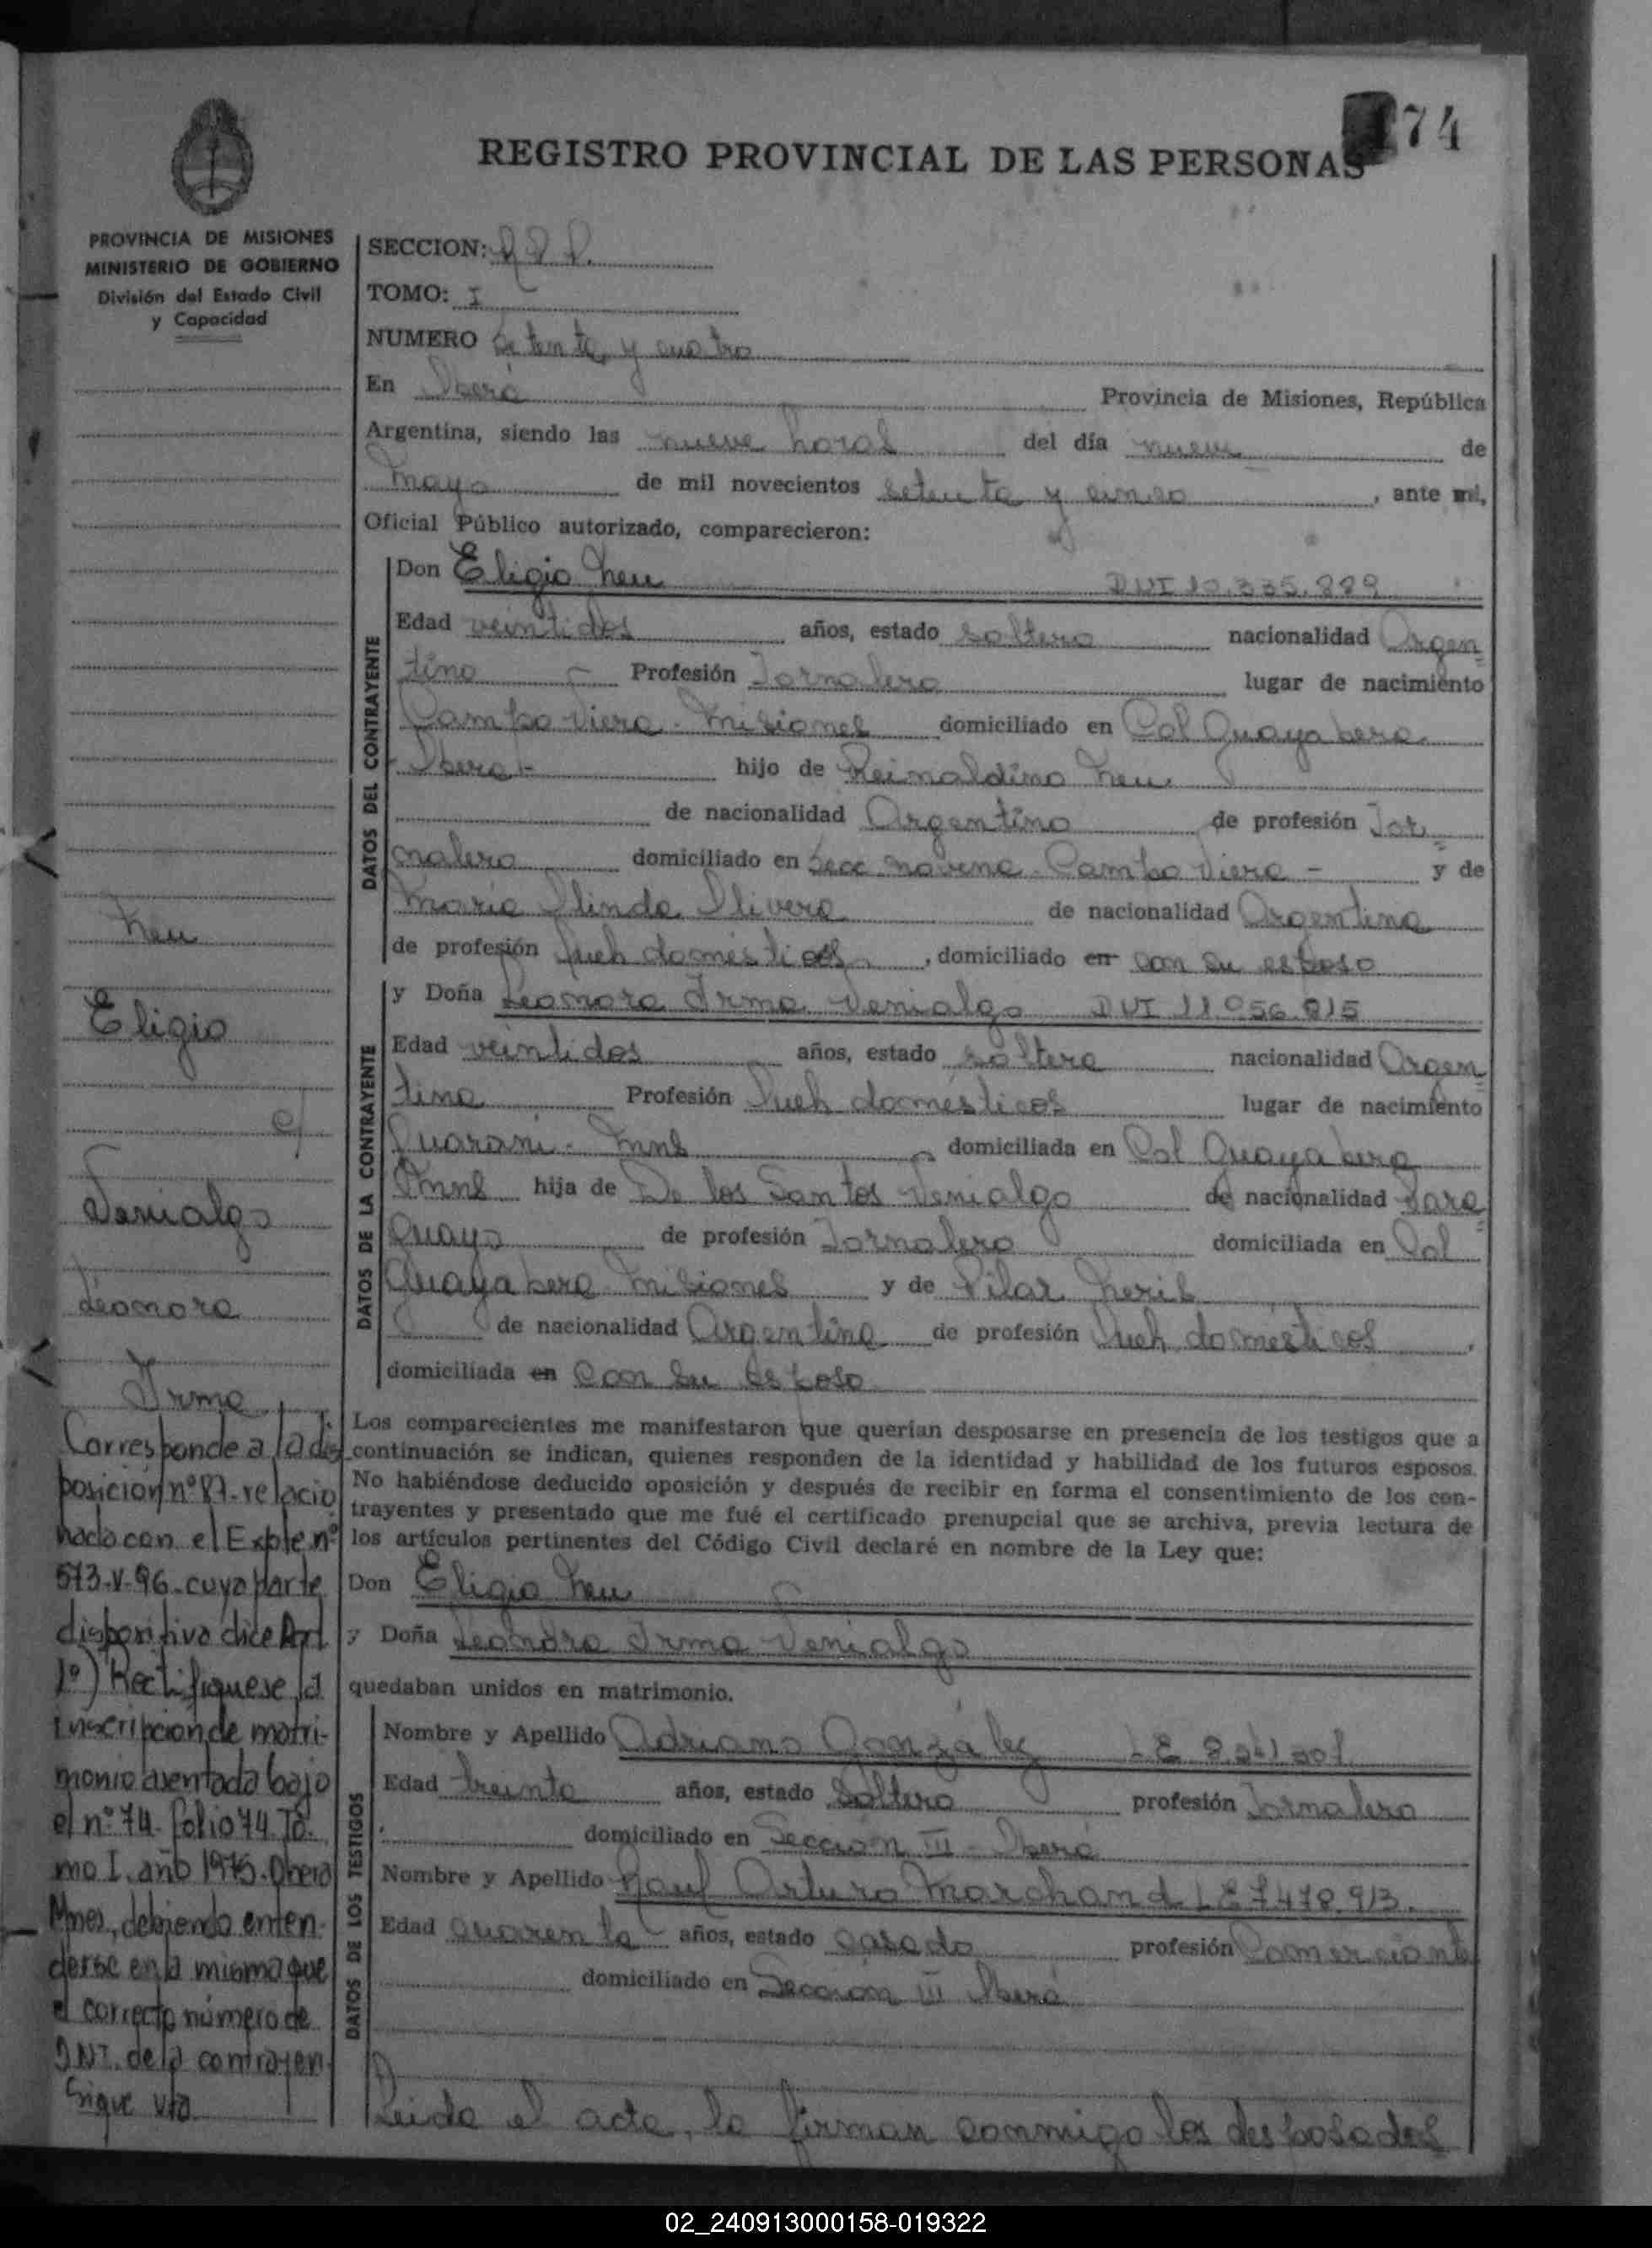 74
REGISTRO PROVINCIAL DE LAS PERSONAS
PROVINCIA DE MISIONES
MINISTERIO DE GOBIERNO
División del Estado Civil
y Capacidad
SECCION:
TOMO: I
NUMERO Setenta y cuatro
En Oberá Provincia de Misiones, República
Argentina, siendo las nueve horas del día nueve de
mayo de mil novecientos setenta y cinco, ante mí,
Oficial Público autorizado, comparecieron:
DATOS DEL CONTRAYENTE
Don Eligio Neu DNI 10.335.889
Edad veintidos años, estado soltero nacionalidad Argen
tino Profesión Jornalero lugar de nacimiento
Campo Viera - Misiones domiciliado en Col Guayabera
Oberá - hijo de Reinaldino Neu
de nacionalidad Argentino de profesión Jor
nalero domiciliado en Secc novena - Campo Viera - y de
Maria Olinda Olivera de nacionalidad Argentina
de profesión Queh domésticos, domiciliado en con su esposo
DATOS DE LA CONTRAYENTE
y Doña Leonora Irma Venialgo DNI 11.056.815
Edad veintidos años, estado soltera nacionalidad Argen
tina Profesión Queh domésticos lugar de nacimiento
Guaraní - Mnes domiciliada en Col Guayabera
Mnes hija de De los Santos Venialgo de nacionalidad Para
guayo de profesión Jornalero domiciliada en Col
Guayabera Misiones y de Pilar Neris
de nacionalidad Argentina de profesión Queh domésticos,
domiciliada en con su esposo
Los comparecientes me manifestaron que querían desposarse en presencia de los testigos que a
continuación se indican, quienes responden de la identidad y habilidad de los futuros esposos.
No habiéndose deducido oposición y después de recibir en forma el consentimiento de los con-
trayentes y presentado que me fué el certificado prenupcial que se archiva, previa lectura de
los artículos pertinentes del Código Civil declaré en nombre de la Ley que:
Don Eligio Neu
y Doña Leonora Irma Venialgo
quedaban unidos en matrimonio.
DATOS DE LOS TESTIGOS
Nombre y Apellido Adriano González LE
Edad treinta años, estado soltero profesión Jornalero
domiciliado en Sección III - Oberá
Nombre y Apellido Raul Arturo Marchand LE 7.478.913.
Edad cuarenta años, estado casado profesión Comerciante
domiciliado en Sección III Oberá
Leida el acta, la firman conmigo los desposados
Neu
Eligio
c/
Venialgo
Leonora
Irma
Corresponde a la dis
posición nº 87 - relacio
nado con el Expte nº
573-V-96 - cuya parte
dispositiva dice Art
1º) Rectifíquese la
inscripcion de matri-
monio asentada bajo
el nº 74 - folio 74 To
mo I, año 1975 - Oberá
Mnes, debiendo enten-
derse en la misma que
el correcto número de
DNI. de la contrayen
Sigue vta
02_240913000158-019322